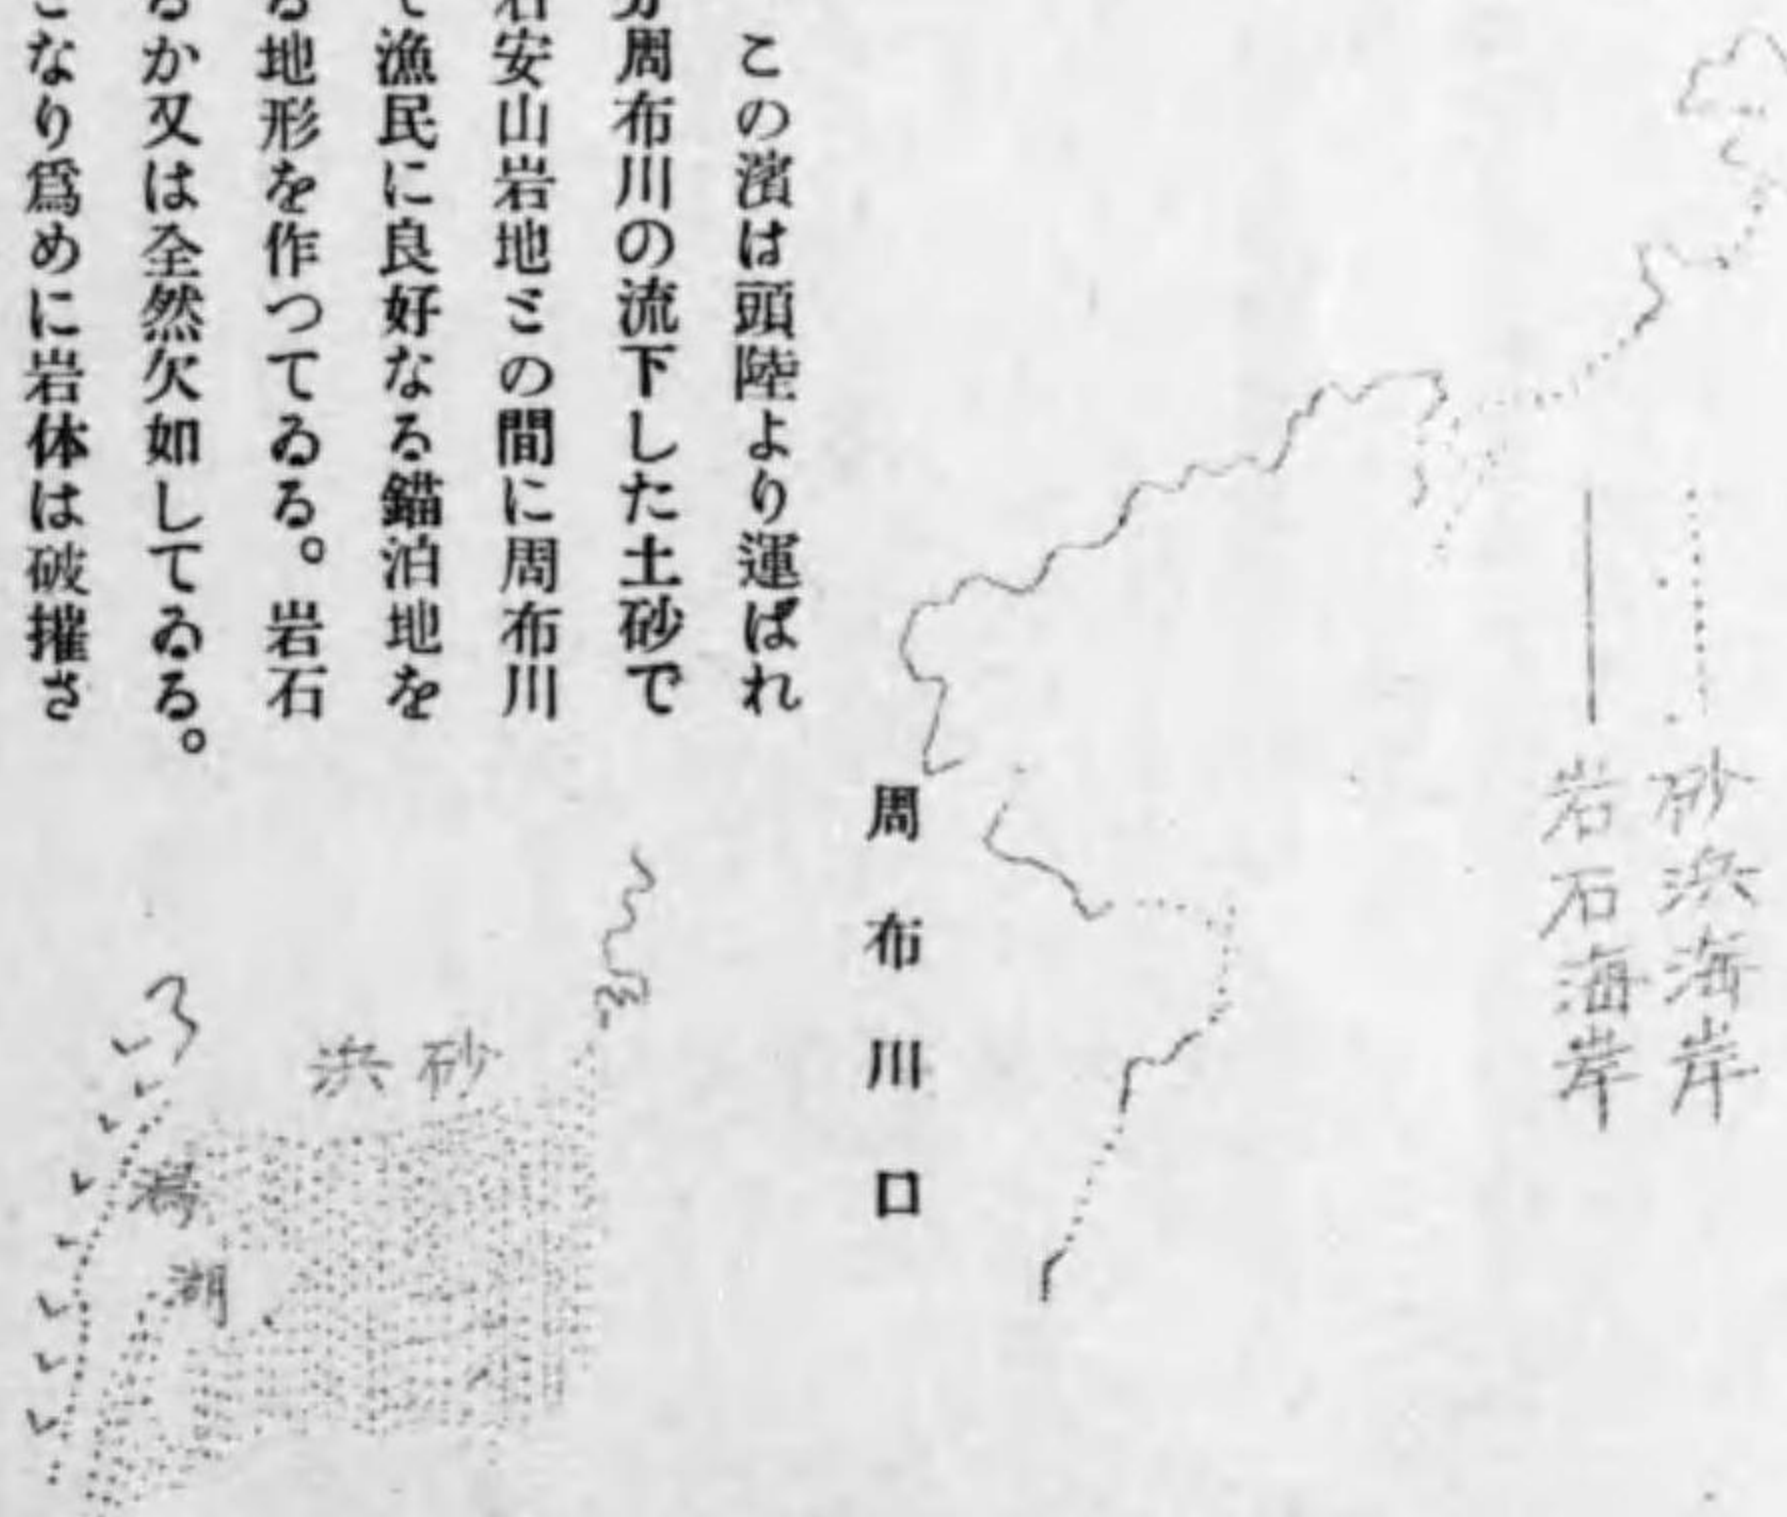 砂浜海岸
岩石海岸
周布川口
この濱は頭陸より運ばれ
周布川の流下した土砂で
安山岩地ミの間に周布川
て漁民に良好なる錨泊地を
る地形を作つてゐる。岩石
るか又は全然欠如してゐる。
なり爲めに岩体は破摧さ
砂浜
潟湖